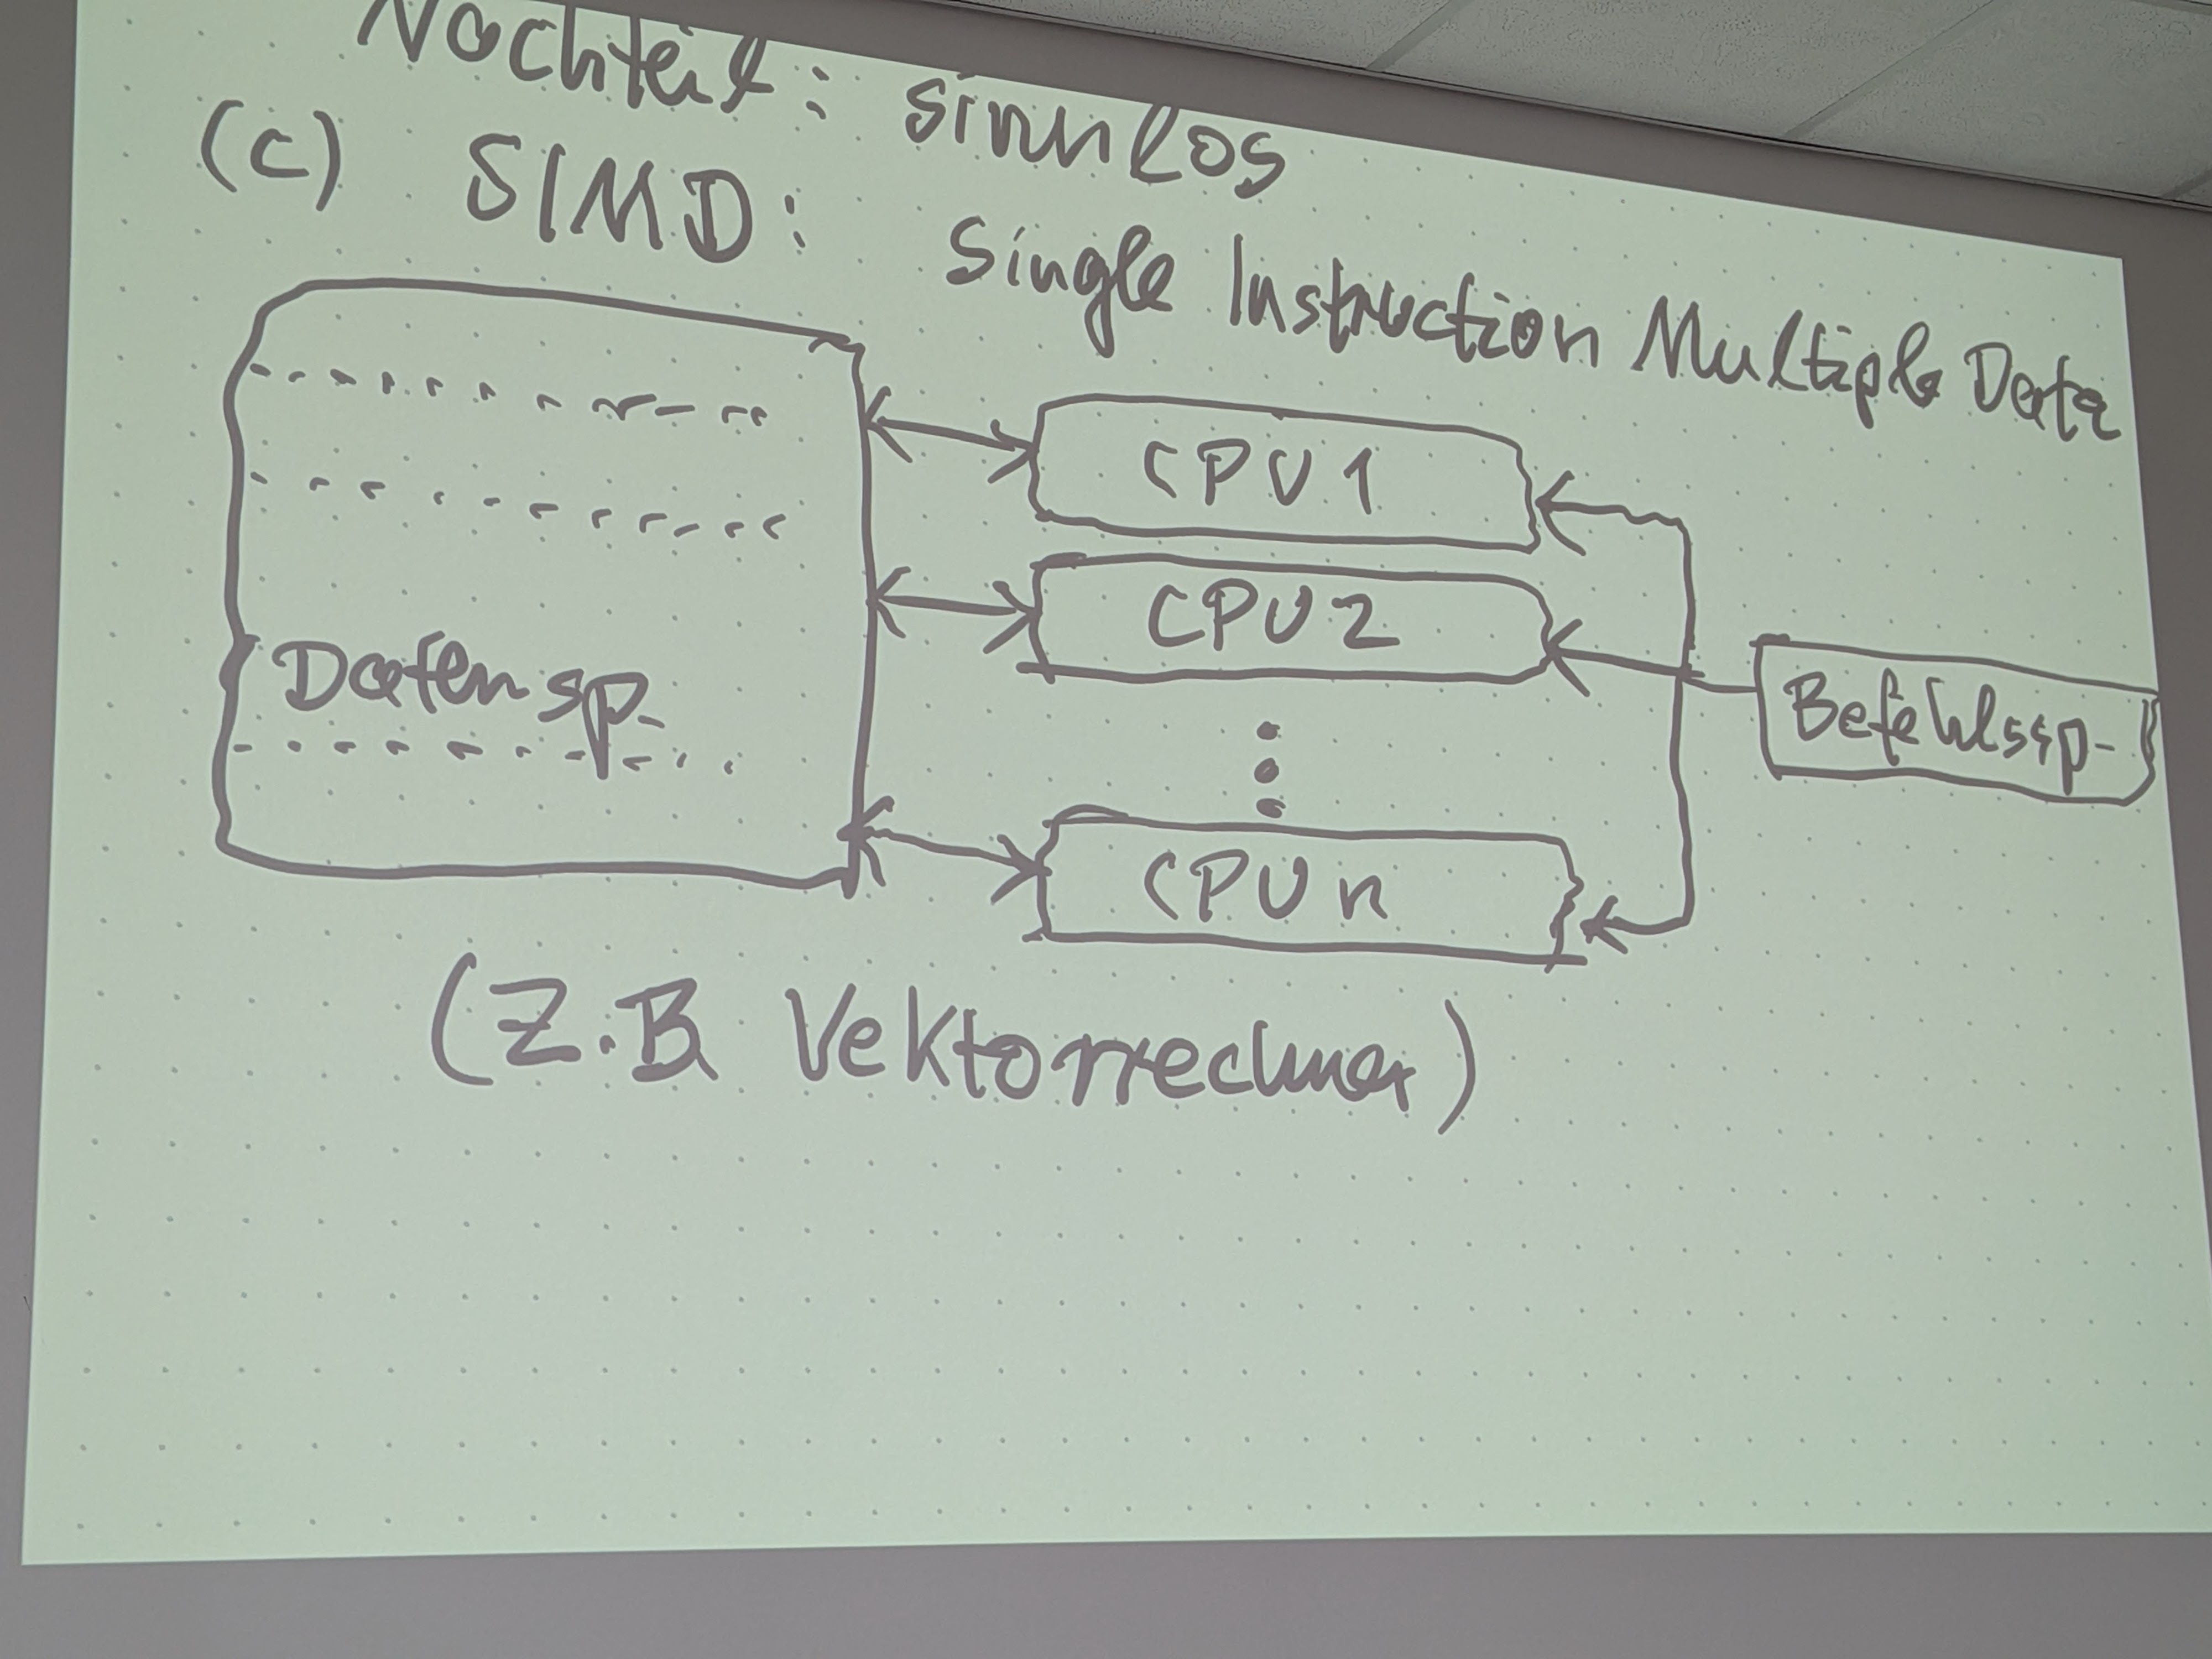 Nachteil: sinnlos
(c) SIMD: Single Instruction Multiple Data
CPU 1
CPU 2
Datensp.
Befehlssp.
CPU n
(Z.B Vektorrechner)